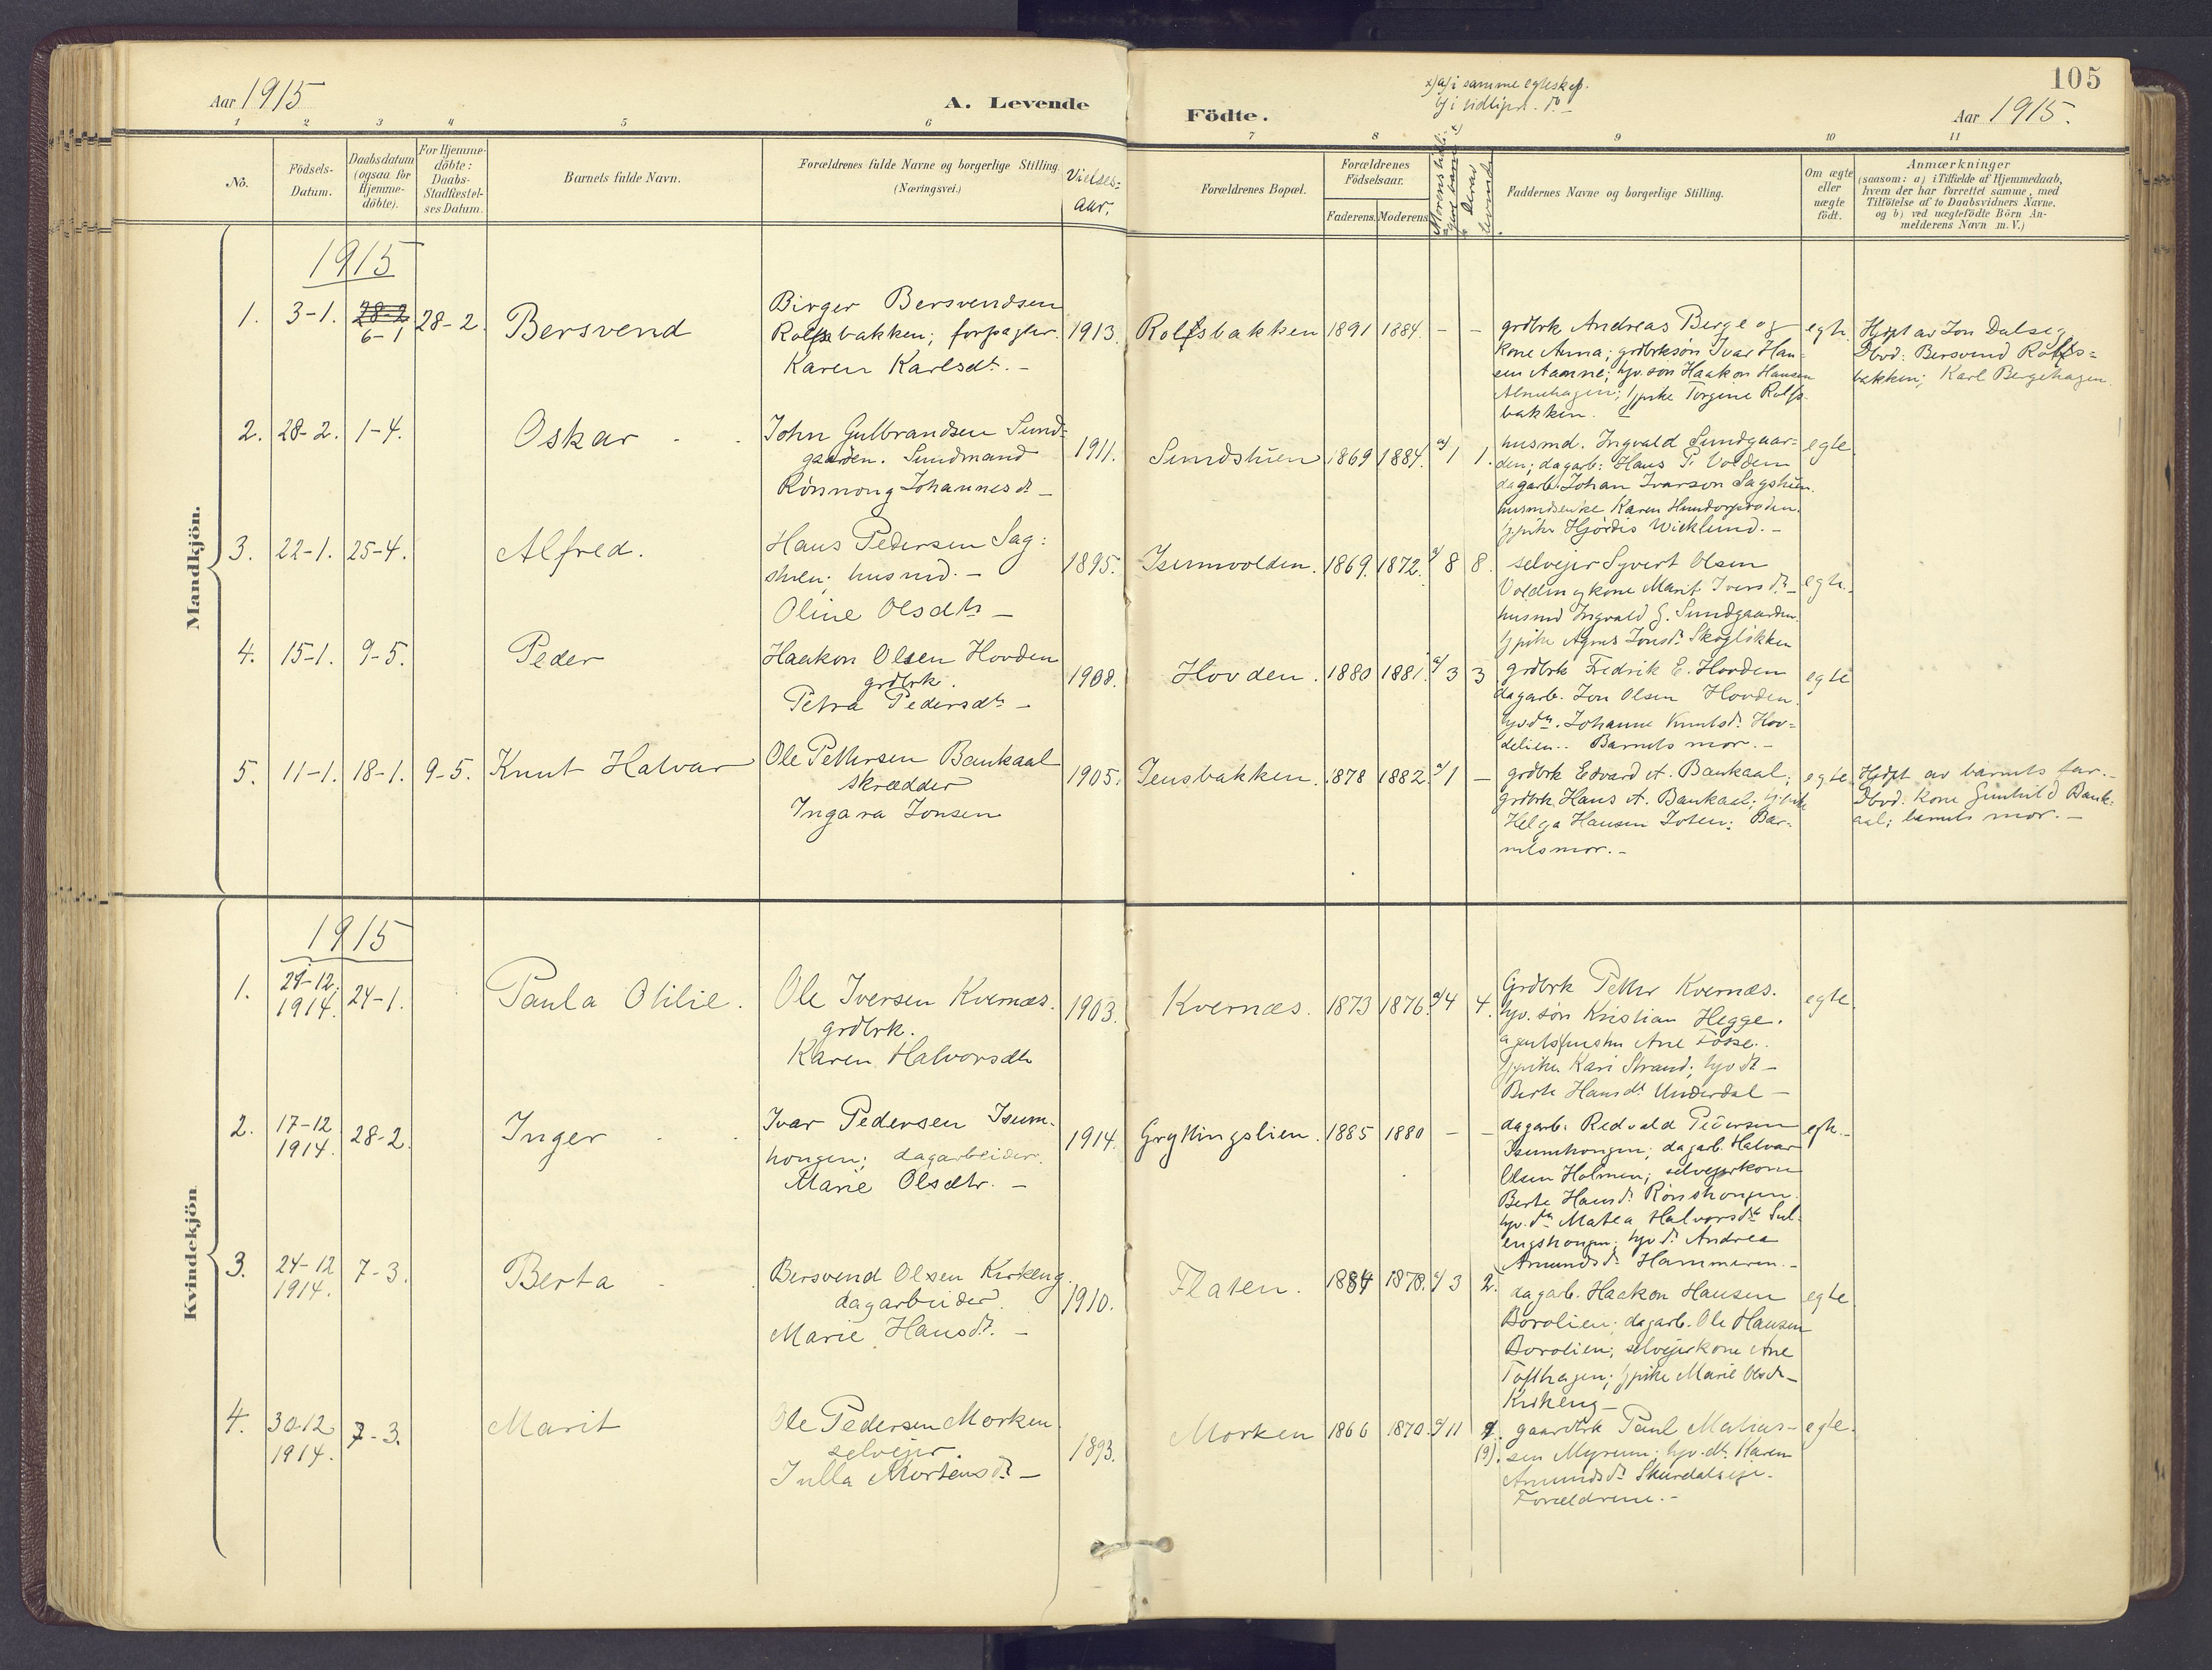 Aar 1915
A. Levende
Födte.
x) a) i samme egteskap.
b) i tidligere do
105
Aar 1915.
1 2 3 4 5 6 7 8 9 10 11
No.
Födsels-
Datum.
Daabsdatum
(ogsaa for
Hjemme-
döbte).
For Hjemme-
döbte:
Daabs-
Stadfæstel-
ses Datum.
Barnets fulde Navn.
Forældrenes fulde Navne og borgerlige Stilling
(Næringsvei.)
Vielses-
aar.
Forældrenes Bopæl.
Forældrenes
Födselsaar.
Faderens. Moderens.
Derav
levende
Faddernes Navne og borgerlige Stilling.
Om ægte
eller
uægte
födt.
Anmærkninger
(saasom: a) i Tilfælde af Hjemmedaab,
hvem der har forrettet samme, med
Tilföielse af to Daabsvidners Navne.
og b) ved uægtefödte Börn An-
melderens Navn m. V.)
Mandkjön.
1915
1. 3-1. 28-2 6-1 28-2. Bersvend
Birger Bersvendsen
Rolfsbakken; forpagter.
Karen Karlsdt. -
1913. Rolfsbakken 1891 1884. - -
grdbrk Andreas Berge og
kone Anna; grdbrksøn Ivar Han-
sen Aamne; gv. søn Haakon Hansen
Almehagen; pike Torgine Rolfs-
bakken.
egte.
Hjdpt av Jon Dalseg
Dbvd: Bersvend Rolfs-
bakken; Karl Bergehagen.
2. 28-2. 1-4. Oskar
John Gulbrandsen Sund-
gaarden. Sundmand
Rönnoug Johannesdt -
1911. Sundstuen 1869 1884. a/ 1 1.
husmd. Ingvald Sundgaar-
den; dagarb: Hans P. Volden
dagarb. Johan Ivarson Sagstuen.
husmdsenke Karen Hundorptrøden.
pike Hjördis Wicklund. -
egte
3. 22-1. 25-4. Alfred.
Hans Pedersen Sag-
stuen; husmd. -
Oline Olsdtr -
1895. Isumvolden. 1869. 1872. a/ 8 8.
selveier Syvert Olsen
Volden og kone Marit Iversdt -
husmd Ingvald G. Sundgaarden.
pike Agnes Jonsdt Skogløkken
egte.
4. 15-1. 9-5. Peder
Haakon Olsen Hovden
grdbrk.
Petra Pedersdtr -
1908. Hovden. 1880 1881. a/ 3 3
grdbrk Fredrik E. Hovden
dagarb. Jon Olsen Hovden.
gvdtr. Johanne Knutsdt Hov-
delien.. Barnets mor. -
egte
5. 11-1. 18-1. 9-5. Knut Halvar
Ole Pettersen Baukaal
skrædder
Ingara Jonsen
1905. Jensbakken. 1878 1882 a/ 1 -
grdbrk Edvard A. Baukaal;
grdbrk Hans A. Baukaal; pike
Helga Hansen Joten; Bar-
nets mor. -
egte
Hjdpt av barnets far. -
Dbvd: kone Gunhild Bauk-
aal; barnets mor. -
Kvindekjön
1915
1. 24-12. 1914. 24-1. Paula Otilie.
Ole Iversen Kvernæs.
grdbrk.
Karen Halvorsdtr
1903. Kvernæs. 1873 1876. a/ 4 4.
Grdbrk Petter Kvernæs.
gv. søn Kristian Hegge.
Ane Fosse.
pike Kari Strand; gvdt -
Berte Hansdt Underdal -
egte.
2. 17-12 1914. 28-2. Inger
Ivar Pedersen Isum-
hongen; dagarbeider.
Marie Olsdtr. -
1914. Gryttingslien. 1885 1880 - -
dagarb. Redvald Pedersen
Isumhongen; dagarb. Halvar
Olsen Holmen; selveierkone
Berte Hansdt Rønshongen.
gv. dtr Matea Halvorsdtr Sul-
engshongen; gvdt. Andrea
Amundsdt Hammeren. -
egte. -
3. 24-12 1914. 7-3. Berta
Bersvend Olsen Kirkeng.
dagarbeider.
Marie Hansdt. -
1910. Flaten. 1884 1878. a/ 3 2.
dagarb. Haakon Hansen
Borolien; dagarb. Ole Hansen
Borolien; selveierkone Ane
Tofthagen; pike Marie Olsdt -
Kirkeng -
egte
4. 30-12 1914. 7-3. Marit
Ole Pedersen Morken.
selveier
Julla Mortensdt -
1893. Morken 1866 1870. a/ 11 9. (9).
gaardbrk Paul Matias-
sen Myrum; gv. dtr. Karen
Amundsdt Skurdalseje.
Forældrene. -
egte.